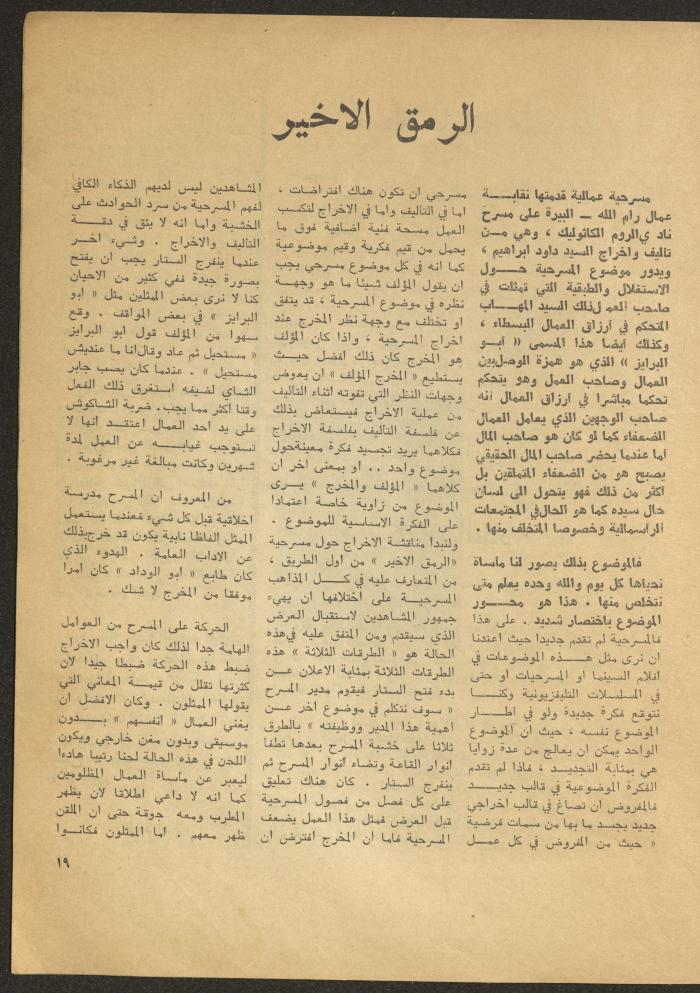 الرمق الاخير
مسرحية عمالية قدمتها نقابــة
عمال رام الله ــ البيرة على مسرح
ناد ي الروم الكاثوليك ، وهي مــن
تاليف واخراج السيد داود ابراهيم ،
ويدور موضوع المسرحية حــــول
الاستغلال والطبقية التي تمثلت في
صاحب العمل لذلك السيد المهــاب
المتحكم في ارزاق العمال البسطاء ،
وكذلك ايضا هذا المسمى « ابــو
البرايز » الذي هو همزة الوصل بين
العمال وصاحب العمل وهو يتحكم
تحكما مباشرا في ارزاق العمال انه
صاحب الوجهين الذي يعامل العمال
الضعفاء كما لو كان هو صاحب المال
اما عندما يحضر صاحب المال الحقيقي
يصبح هو من الضعفاء المتملقين بل
اكثر من ذلك فهو يتحول الى لسان
حال سيده كما هو الحال في المجتمعات
الراسمالية وخصوصا المتخلف منها .
فالموضوع بذلك يصور لنا مأساة
نحياها كل يوم والله وحده يعلم متى
نتخلص منها . هذا هو محــــور
الموضوع باختصار شديد . على هذا
فالمسرحية لم تقدم جديدا حيث اعتدنا
ان نرى مثل هـــذه الموضوعات في
افلام السينما او المسرحيات او حتى
في المسلسلات التليفزيونية وكنــا
نتوقع فكرة جديدة ولو في اطـــار
الموضوع نفسه ، حيث ان الموضوع
الواحد يمكن ان يعالج من عدة زوايا
هي بمثابة التجديــد ، فاذا لم تقدم
الفكرة الموضوعية في قالب جديـــد
فالمفروض ان تصاغ في قالب اخراجي
جديد يجسد ما بها من سمات فرضية
« حيث من المفروض في كل عمــل
مسرحي ان تكون هناك افتراضات ،
اما في التاليف واما في الاخراج لتكسب
العمل مسحة فنية اضافية فوق ما
يحمل من قيم فكرية وقيم موضوعية
كما انه في كل موضوع مسرحي يجب
ان يقول المؤلف شيئا ما هو وجهــة
نظره في موضوع المسرحية ، قد يتفق
او تختلف مع وجهة نظر المخرج عند
اخراج المسرحية ، واذا كان المؤلف
هو المخرج كان ذلك افضل حيــث
يستطيع « المخرج المؤلف » ان يعوض
وجهات النظر التي تفوته اثناء التاليف
من عملية الاخراج فيستعاض بذلك
عن فلسفة التأليف بفلسفة الاخراج
فكلاهما يريد تجسيد فكرة معينة حول
موضوع واحد .. او بمعنى اخر ان
كلاهما « المؤلف والمخرج » يــرى
الموضوع من زاوية خاصة اعتمادا
على الفكرة الاساسية للموضوع .
ولنبدأ مناقشة الاخراج حول مسرحية
«الرمق الاخير » من اول الطريق ،
من المتعارف عليه في كـــل المذاهب
المسرحيــة على اختلافها ان يهيء
جمهور المشاهدين لاستقبال العرض
الذي سيقدم ومن المتفق عليه في هذه
الحالة هو « الطرقات الثلاثة » هذه
الطرقات الثلاثة بمثابة الاعلان عــن
بدء فتح الستار فيقوم مدير المسرح
« سوف نتكلم في موضوع اخر عــن
اهمية هذا المدير ووظيفته » بالطرق
ثلاثا على خشبة المسرح بعدها تطفأ
انوار القاعة وتضاء انوار المسرح ثم
ينفرج الستار . كان هناك تعليق
على كل فصل من فصول المسرحية
قبل العرض فمثل هذا العمل يضعف
المسرحية فاما ان المخرج افترض ان
المشاهدين ليس لديهم الذكاء الكافي
لفهم المسرحية من سرد الحوادث على
الخشبة واما انه لا يثق في دقــــة
التاليف والاخراج . وشيء اخــر
عندما ينفرج الستار يجب ان يفتح
بصورة جيدة ففي كثير من الاحيان
كنا لا نرى بعض الممثلين مثل « ابو
البرايز » في بعض المواقف . وقع
سهوا من المؤلف قول ابو البرايز
« مستحيل ثم عاد وقال انا ما عنديش
مستحيل » . عندما كان يصب جابر
الشاي لضيفه استغرق ذلك الفعل
وقتا اكثر مما يجب . ضربة الشاكوش
على يد احد العمال اعتقــد انها لا
تستوجب غيابـــه عن العمل لمدة
شهرين وكانت مبالغة غير مرغوبة .
من المعروف ان المسرح مدرسة
اخلاقية قبل كل شيء فعندما يستعمل
الممثل الفاظا نابية يكون قد خرج بذلك
عن الاداب العامة . الهدوء الذي
كان طابع « ابو الوداد » كان امرا
موفقا من المخرج لا شك .
الحركة على المسرح من العوامل
الهامة جدا لذلك كان واجب الاخراج
ضبط هذه الحركة ضبطا جيدا لان
كثرتها تقلل من قيمــة المعاني التي
يقولها الممثلون . وكان الافضل ان
يغني العمال « انفسهم » بـــدون
موسيقى وبدون مغن خارجي ويكون
اللحن في هذه الحالة لحنا رتيبا هادءا
ليعبر عن ماساة العمال المظلومين
كما انه لا داعي اطلاقا لان يظهر
المطرب ومعه جوقة حتى ان الملقن
ظهر معهم . اما الممثلون فكانــوا
١٩